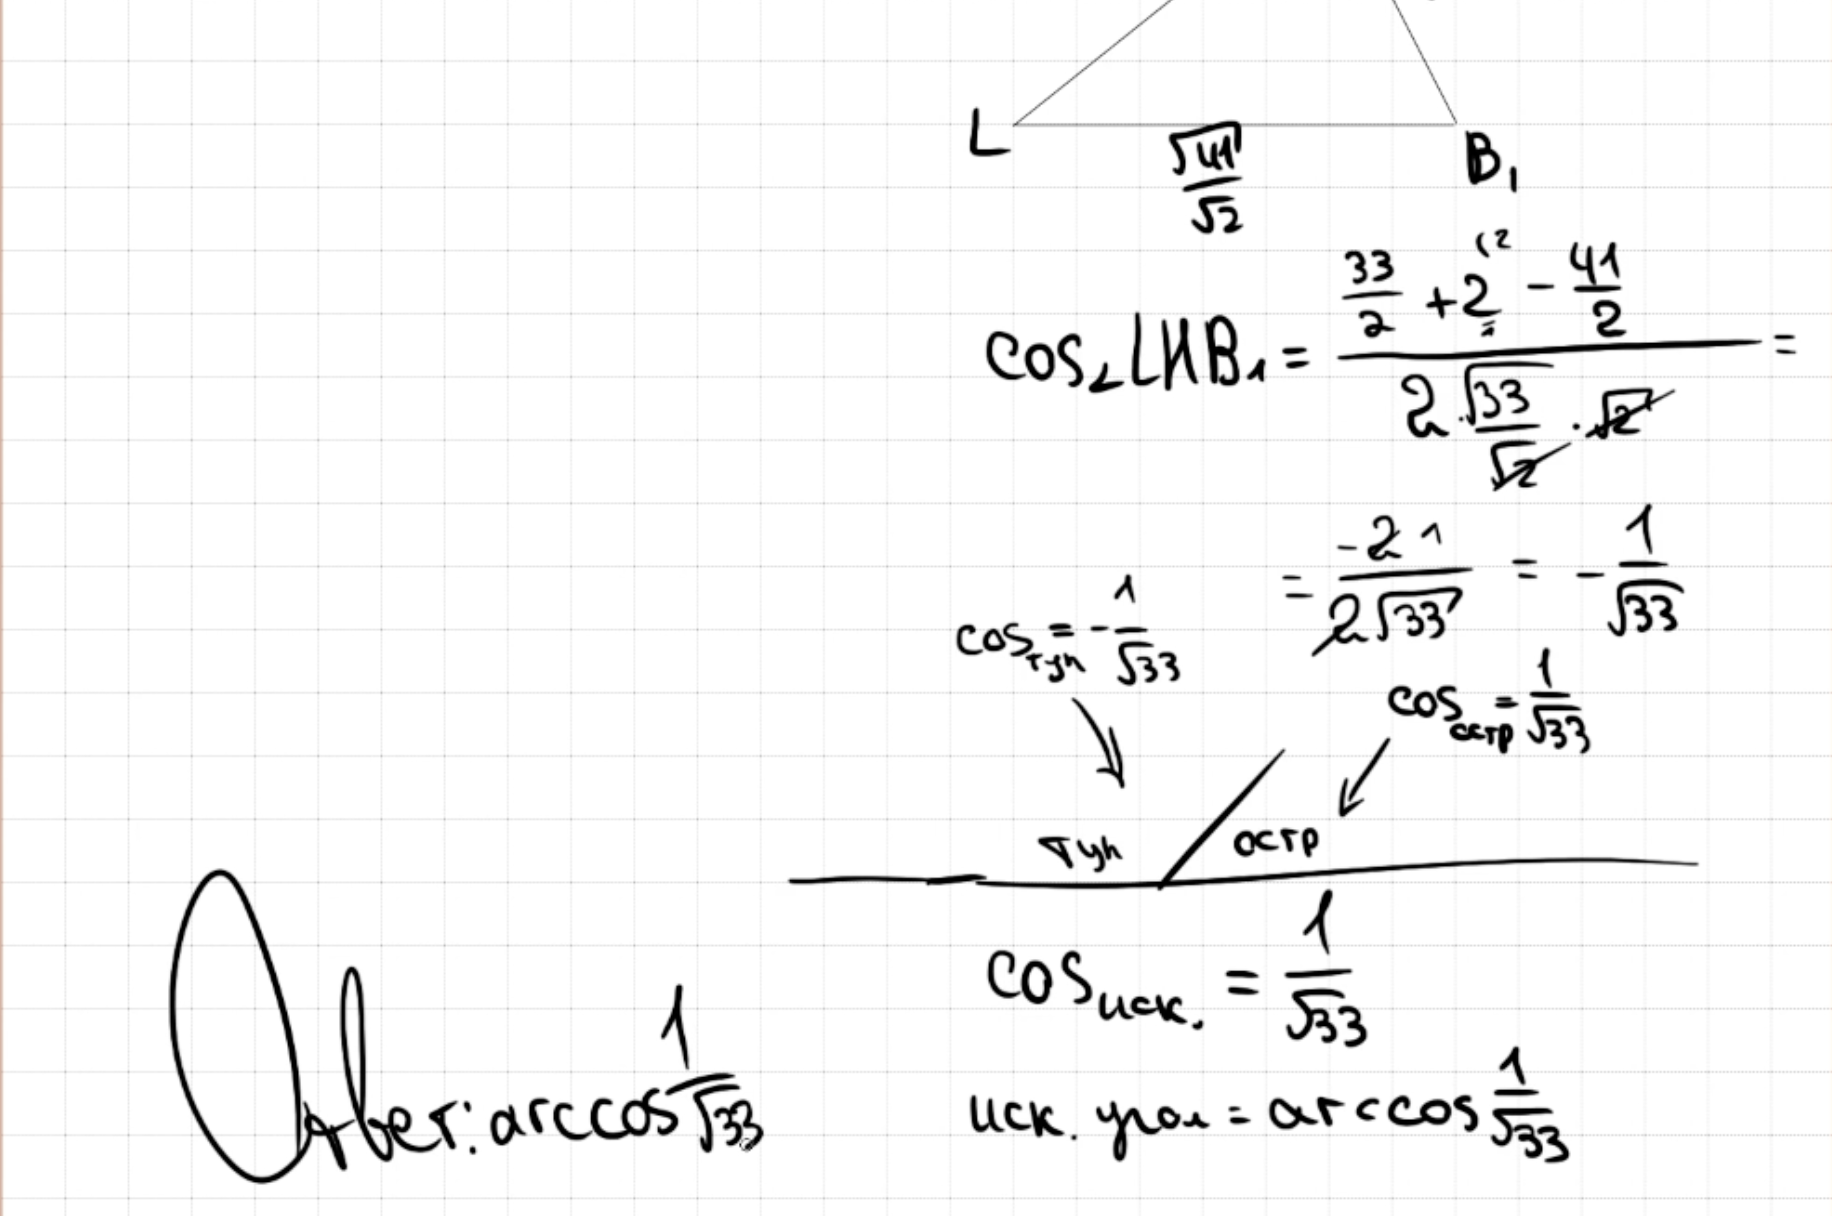 L
B₁
√41/√2
cos∠LHB₁ = (33/2 + 2 - 41/2)/(2·√33/√2 · √2) =
= -2 1/(2√33) = -1/√33
cos туп = -1/√33
cos остр = 1/√33
туп остр
cos иск. = 1/√33
иск. угол = arccos 1/√33
Ответ: arccos 1/√33